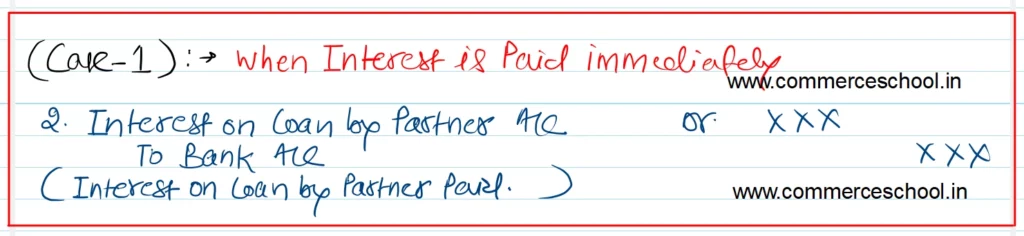 (Case-1) :→ When Interest is Paid immediately
www.commerceschool.in
2. Interest on Loan by Partner A/c Dr. XXX
To Bank A/c XXX
(Interest on Loan by Partner Paid.)
www.commerceschool.in